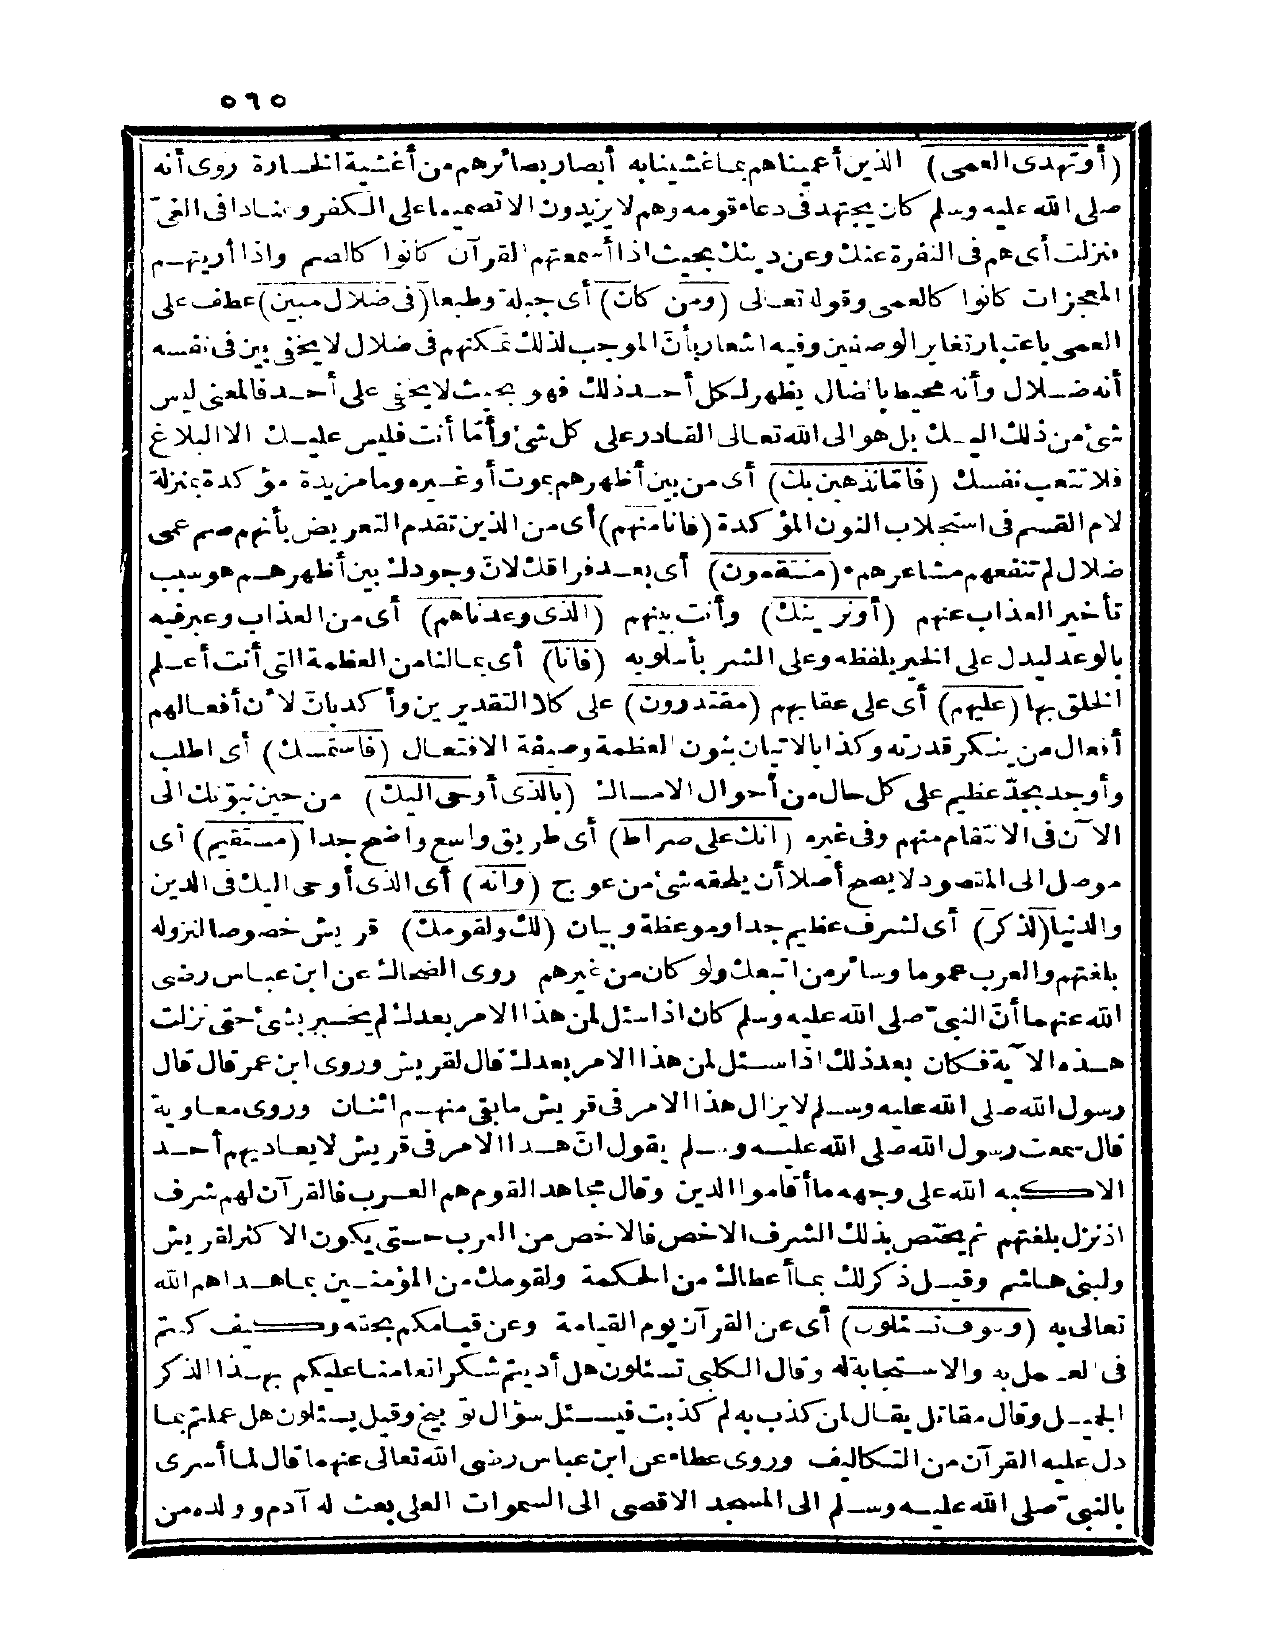 ٥٦٥
(أو تهدى العمى) الذين أعميناهم بما غشينا به أبصار بصائرهم من أغشية الخسارة روى أنه
صلى الله عليه وسلم كان يجتهد فى دعاء قومه وهم لا يزيدون الا تصميما على الكفر وعنادا فى الغىّ
فنزلت أى هم فى النفرة عنك وعن دينك بحيث اذا أسمعتهم القرآن كانوا كالصم واذا أريتهم
المعجزات كانوا كالعمى وقوله تعالى (ومن كان) أى جبلة وطبعا (فى ضلال مبين) عطف على
العمى باعتبار تغاير الوصفين وفيه اشعار بأنّ الموجب لذلك تمكنهم فى ضلال لا يخفى بين فى نفسه
أنه ضلال وأنه محيط بالضال يظهر لكل أحد ذلك فهو بحيث لا يخفى على أحد فالمعنى ليس
شئ من ذلك اليك بل هو الى الله تعالى القادر على كل شئ وأمّا أنت فليس عليك الا البلاغ
فلا تتعب نفسك (فامّا نذهبنّ بك) أى من بين أظهرهم بموت أو غيره وما مزيدة مؤكدة بمنزلة
لام القسم فى استجلاب النون المؤكدة (فانا منهم) أى من الذين تقدم التعريض بأنهم صم عمى
ضلال لم تنفعهم مشاعرهم (منتقمون) أى بعد فراقك لانّ وجودك بين أظهرهم هو سبب
تأخير العذاب عنهم (أو نرينك) وأنت بينهم (الذى وعدناهم) أى من العذاب وعبر فيه
بالوعد ليدل على الخير بلفظه وعلى الشر بأسلوبه (فانا) أى بما لنا من العظمة التى أنت أعلم
الخلق بها (عليهم) أى على عقابهم (مقتدرون) على كلا التقديرين وأكد بانّ لانّ أفعالهم
أفعال من ينكر قدرته وكذا بالاتيان بنون العظمة وصيغة الافتعال (فاستمسك) أى اطلب
وأوجد بجدّ عظيم على كل حال من أحوال الامساك (بالذى أوحى اليك) من حين نبوّتك الى
الآن فى الانتقام منهم وفى غيره (انك على صراط) أى طريق واسع واضح جدا (مستقيم) أى
موصل الى المقصود لا يصح أصلا أن يلحقه شئ من عوج (وانه) أى الذى أوحى اليك فى الدين
والدنيا (لذكر) أى لشرف عظيم جدا وموعظة وبيان (لك ولقومك) قريش خصوصا لنزوله
بلغتهم والعرب عموما وسائر من اتبعك ولو كان من غيرهم روى الضحاك عن ابن عباس رضى
الله عنهما أنّ النبىّ صلى الله عليه وسلم كان اذا سئل لمن هذا الامر بعدك لم يخبر بشئ حتى نزلت
هذه الآية فكان بعد ذلك اذا سئل لمن هذا الامر بعدك قال لقريش وروى ابن عمر قال قال
رسول الله صلى الله عليه وسلم لا يزال هذا الامر فى قريش ما بقى منهم اثنان وروى معاوية
قال سمعت رسول الله صلى الله عليه وسلم يقول انّ هذا الامر فى قريش لا يعاديهم أحد
الا كبه الله على وجهه ما أقاموا الدين وقال مجاهد القوم هم العرب فالقرآن لهم شرف
اذ نزل بلغتهم ثم يختص بذلك الشرف الاخص فالاخص من العرب حتى يكون الاكثر لقريش
ولبنى هاشم وقيل ذكر لك بما أعطاك من الحكمة ولقومك من المؤمنين بما هداهم الله
تعالى به (وسوف تسئلون) أى عن القرآن يوم القيامة وعن قيامكم بحقه وكيف كنتم
فى العمل به والاستجابة له وقال الكلبى تسئلون هل أديتم شكر انعامنا عليكم بهذا الذكر
الجميل وقال مقاتل يقال لمن كذب به لم كذبت فيسئل سؤال توبيخ وقيل يسئلون هل عملتم بما
دل عليه القرآن من التكاليف وروى عطاء عن ابن عباس رضى الله تعالى عنهما قال لما أسرى
بالنبىّ صلى الله عليه وسلم الى المسجد الاقصى الى السموات العلى بعث له آدم وولده من